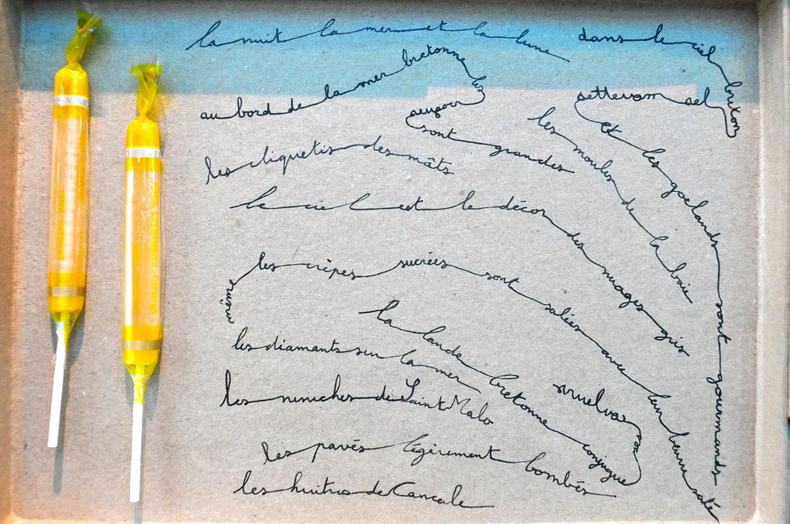 la nuit la mer et la lune
dans le ciel breton
au bord de la mer bretonne les
sont grandes
les mouettes et les goelands sont gourmands
les moules de la baie
les cliquetis des mâts
le ciel est le décor des nuages gris
même les crêpes sucrées sont salées avec leur beurre salé
la lande bretonne conjugue ses couleurs
les diamants sur la mer
les niniches de Saint Malo
les pavés légèrement bombés
les huitres de Cancale